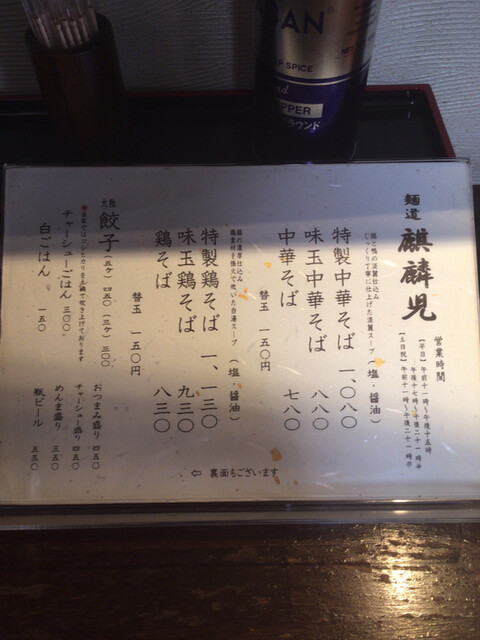 BAN
SPICE
PPER
ラウンド
麺道 麒麟児
営業時間
【平日】 午前十一時〜午後十五時
午後十七時〜午後二十一時半
【土日祝】 午前十一時〜午後二十一時半
鶏と鴨の清麗仕込み
じっくり丁寧に仕上げた清麗スープ (塩・醤油)
特製中華そば 一、〇八〇
味玉中華そば 八八〇
中華そば 七八〇
替玉 一五〇円
鶏の濃厚仕込み
鶏素材を強火で炊いた白湯スープ (塩・醤油)
特製鶏そば 一、一三〇
味玉鶏そば 九三〇
鶏そば 八三〇
替玉 一五〇円
餃子 (五ケ) 四五〇 (三ケ) 三〇〇
チャーシューごはん 三〇〇
白ごはん 一五〇
おつまみ盛り 四五〇
チャーシュー盛り 四五〇
めんま盛り 三五〇
瓶ビール 五五〇
⇦ 裏面もございます